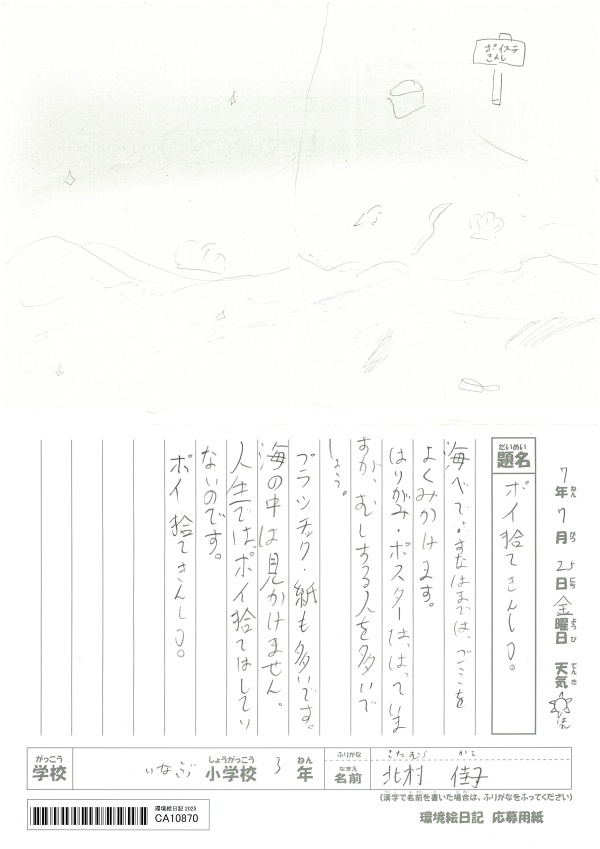 ポイステ
きんし
7年7月25日金曜日 天気
ねん がつ にち ようび てんき
だいめい
題名
ポイ捨てきんし〇。
海べで、すなはまでは、ごみを
よくみかけます。
はりがみ・ポスターは、はっていま
すが、むしする人を多いで
しょう。
プラッチック・紙も多いです。
海の中は見かけません。
人生では、ポイ捨てはしてい
ないのです。
ポイ捨てきんし〇。
がっこう
学校
しょうがっこう
小学校 3
ねん
年
ふりがな
きたむら
なまえ
名前
北村 佳子
(漢字で名前を書いた場合は、ふりがなをふってください)
環境絵日記 2025
CA10870
環境絵日記 応募用紙